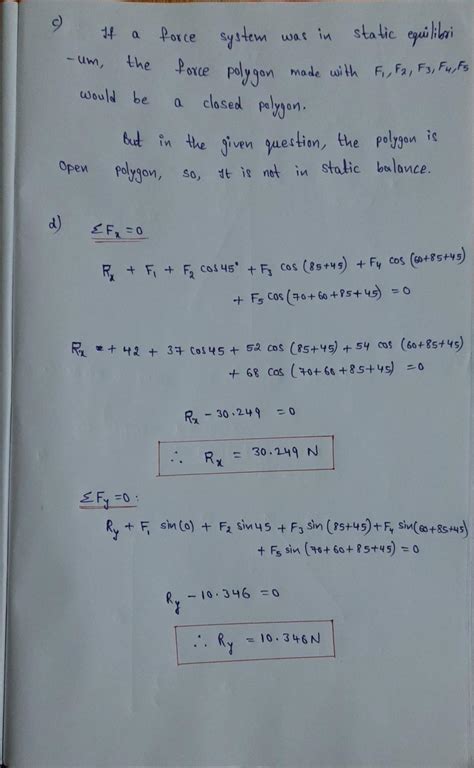 c) If a force system was in static equilibri
-um, the force polygon made with F₁, F₂, F₃, F₄, F₅
would be a closed polygon.
But in the given question, the polygon is
open polygon, so, It is not in static balance.
d) ΣFx = 0
Rx + F₁ + F₂ cos45° + F₃ cos (85+45) + F₄ cos (60+85+45)
+ F₅ cos (70+60+85+45) = 0
Rx + 42 + 37 cos45 + 52 cos (85+45) + 54 cos (60+85+45)
+ 68 cos (70+60+85+45) = 0
Rx - 30.249 = 0
∴ Rx = 30.249 N
ΣFy = 0 :
Ry + F₁ sin(0) + F₂ sin45 + F₃ sin (85+45) + F₄ sin(60+85+45)
+ F₅ sin (70+60+85+45) = 0
Ry - 10.346 = 0
∴ Ry = 10.346 N